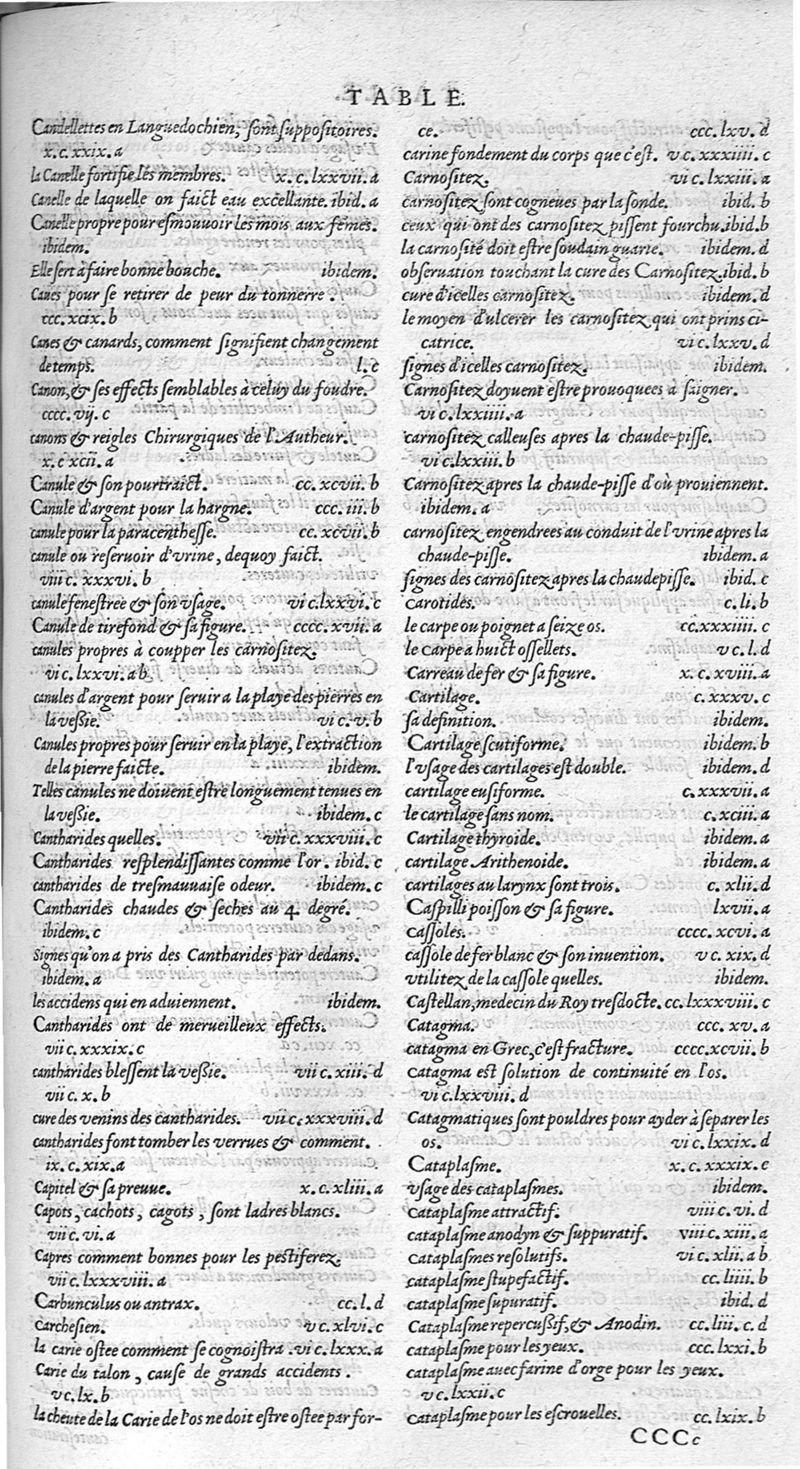 TABLE.
Candellettes en Languedochien, sont suppositoires.
x.c.xxix.a
la Canelle fortifie les membres. x.c.lxxvii.a
Canelle de laquelle on faict eau excellante. ibid.a
Canelle propre pour esmouuoir les mois aux fẽmes.
ibidem.
Elle sert à faire bonne bouche. ibidem.
Canes pour se retirer de peur du tonnerre.
ccc.xcix.b
Canes & canards, comment signifient changement
de temps. l.c
Canon, & ses effects semblables à celuy du foudre.
cccc.vij.c
canons & reigles Chirurgiques de l'Autheur.
x.c xcii.a
Canule & son pourtraict. cc.xcvii.b
Canule d'argent pour la hargne. ccc.iii.b
canule pour la paracenthesse. cc.xcvii.b
canule ou reseruoir d'vrine, dequoy faict.
viii c.xxxvi.b
canule fenestree & son vsage. vi c.lxxvi.c
Canule de tirefond & sa figure. cccc.xvii.a
canules propres à coupper les carnositez.
vi c.lxxvi.a b
canules d'argent pour seruir a la playe des pierres en
la veßie. vi c.v.b
Canules propres pour seruir en la playe, l'extraction
de la pierre faicte. ibidem.
Telles canules ne doiuent estre longuement tenues en
la veßie. ibidem.c
Cantharides quelles. vii c.xxxviii.c
Cantharides resplendissantes comme l'or. ibid.c
cantharides de tresmauuaise odeur. ibidem.c
Cantharides chaudes & seches au 4. degré.
ibidem.c
Signes qu'on a pris des Cantharides par dedans.
ibidem.a
les accidens qui en aduiennent. ibidem.
Cantharides ont de merueilleux effects.
vii c.xxxix.c
cantharides blessent la veßie. vii c.xiii.d
vii c.x.b
cure des venins des cantharides. vii c.xxxviii.d
cantharides font tomber les verrues & comment.
ix.c.xix.a
Capitel & sa preuue. x.c.xliii.a
Capots, cachots, cagots, sont ladres blancs.
vii c.vi.a
Capres comment bonnes pour les pestiferez.
vii c.lxxxviii.a
Carbunculus ou antrax. cc.l.d
Carchesien. v c.xlvi.c
la carie ostee comment se cognoistra. vi c.lxxx.a
Carie du talon, cause de grands accidents.
v c.lx.b
la cheute de la Carie de l'os ne doit estre ostee par for-
ce. ccc.lxv.d
carine fondement du corps que c'est. v c.xxxiiii.c
Carnositez. vi c.lxxiii.a
carnositez sont cogneues par la sonde. ibid.b
ceux qui ont des carnositez pissent fourchu. ibid.b
la carnosité doit estre soudain guarie. ibidem.d
obseruation touchant la cure des Carnositez. ibid.b
cure d'icelles carnositez. ibidem.d
le moyen d'ulcerer les carnositez qui ont prins ci-
catrice. vi c.lxxv.d
signes d'icelles carnositez. ibidem.
Carnositez doyuent estre prouoquees à saigner.
vi c.lxxiiii.a
carnositez calleuses apres la chaude-pisse.
vi c.lxxiii.b
Carnositez apres la chaude-pisse d'où prouiennent.
ibidem.a
carnositez engendrees au conduit de l'vrine apres la
chaude-pisse. ibidem.a
signes des carnositez apres la chaudepisse. ibid.c
carotides. c.li.b
le carpe ou poignet a seize os. cc.xxxiiii.c
le Carpe a huict ossellets. v c.l.d
Carreau de fer & sa figure. x.c.xviii.a
Cartilage. c.xxxv.c
sa definition. ibidem.
Cartilage scutiforme. ibidem.b
l'vsage des cartilages est double. ibidem.d
cartilage eusiforme. c.xxxvii.a
le cartilage sans nom. c.xciii.a
Cartilage thyroide. ibidem.a
cartilage Arithenoide. ibidem.a
cartilages au larynx sont trois. c.xlii.d
Caspilli poisson & sa figure. lxvii.a
cassoles. cccc.xcvi.a
cassole de fer blanc & son inuention. v c.xix.d
vtilitez de la cassole quelles. ibidem.
Castellan, medecin du Roy tresdocte. cc.lxxxviii.c
Catagma. ccc.xv.a
catagma en Grec, c'est fracture. cccc.xcvii.b
Catagma est solution de continuité en l'os.
vi c.lxxviii.d
Catagmatiques sont pouldres pour ayder à separer les
os. vi c.lxxix.d
Cataplasme. x.c.xxxix.c
vsage des cataplasmes. ibidem.
cataplasme attractif. viii c.vi.d
cataplasme anodyn & suppuratif. viii c.xiii.a
Cataplasmes resolutifs. vi c.xlii.a b
cataplasme stupefactif. cc.liiii.b
cataplasme supuratif. ibid.d
Cataplasme repercußif, & Anodin. cc.liii.c.d
Cataplasme pour les yeux. ccc.lxxi.b
cataplasme auec farine d'orge pour les yeux.
v c.lxxii.c
cataplasme pour les escrouelles. cc.lxix.b
CCCc